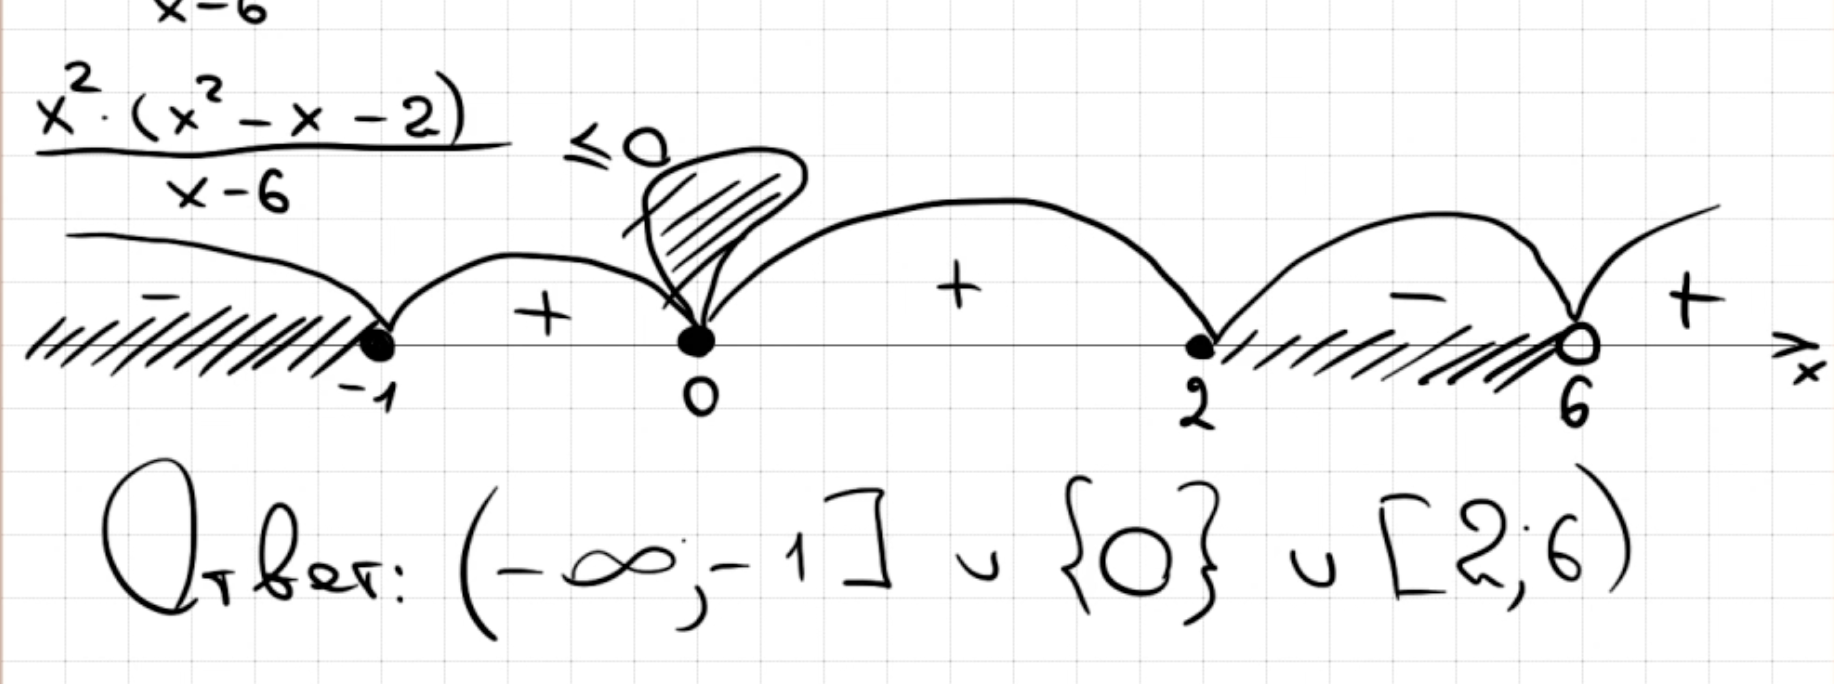 x-6
x²·(x²-x-2)
x-6
≤0
- + + - +
-1 0 2 6 x
Ответ: (-∞;-1] ∪ {0} ∪ [2;6)